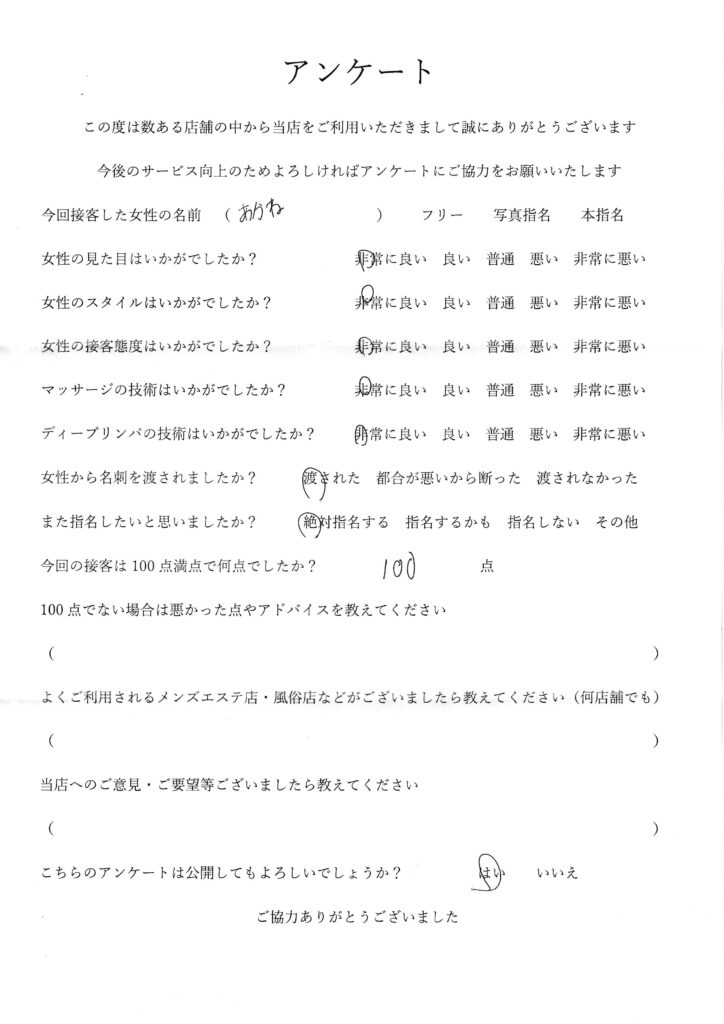 アンケート
この度は数ある店舗の中から当店をご利用いただきまして誠にありがとうございます
今後のサービス向上のためよろしければアンケートにご協力をお願いいたします
今回接客した女性の名前 （ あかね ） フリー 写真指名 本指名
女性の見た目はいかがでしたか？ 非常に良い 良い 普通 悪い 非常に悪い
女性のスタイルはいかがでしたか？ 非常に良い 良い 普通 悪い 非常に悪い
女性の接客態度はいかがでしたか？ 非常に良い 良い 普通 悪い 非常に悪い
マッサージの技術はいかがでしたか？ 非常に良い 良い 普通 悪い 非常に悪い
ディープリンパの技術はいかがでしたか？ 非常に良い 良い 普通 悪い 非常に悪い
女性から名刺を渡されましたか？ 渡された 都合が悪いから断った 渡されなかった
また指名したいと思いましたか？ 絶対指名する 指名するかも 指名しない その他
今回の接客は 100 点満点で何点でしたか？ 100 点
100 点でない場合は悪かった点やアドバイスを教えてください
（ ）
よくご利用されるメンズエステ店・風俗店などがございましたら教えてください（何店舗でも）
（ ）
当店へのご意見・ご要望等ございましたら教えてください
（ ）
こちらのアンケートは公開してもよろしいでしょうか？ はい いいえ
ご協力ありがとうございました